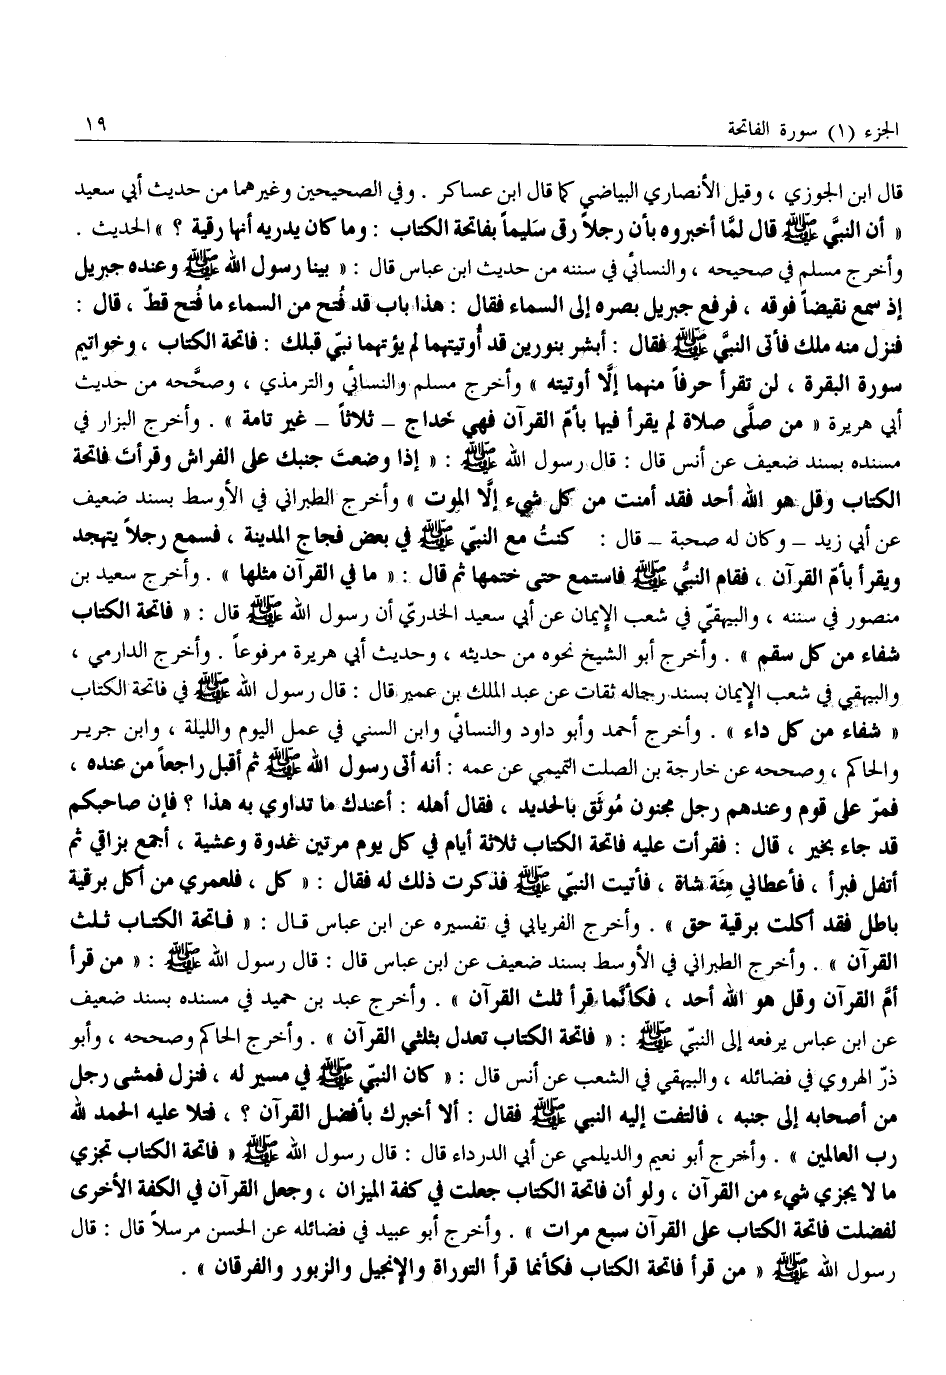 الجزء (١) سورة الفاتحة ١٩
قال ابن الجوزي ، وقيل الأنصاري البياضي كما قال ابن عساكر . وفي الصحيحين وغيرهما من حديث أبي سعيد
« أن النبيَّ ﷺ قال لمَّا أخبروه بأن رجلاً رقى سَليماً بفاتحة الكتاب : وما كان يدريه أنها رقية ؟ » الحديث .
وأخرج مسلم في صحيحه ، والنسائي في سننه من حديث ابن عباس قال : « بينا رسول الله ﷺ وعنده جبريل
إذ سمع نقيضاً فوقه ، فرفع جبريل بصره إلى السماء فقال : هذا باب قد فُتح من السماء ما فُتح قطّ ، قال :
فنزل منه ملك فأتى النبيَّ ﷺ فقال : أبشر بنورين قد أُوتيتهما لم يؤتهما نبيّ قبلك : فاتحة الكتاب ، وخواتيم
سورة البقرة ، لن تقرأ حرفاً منهما إلَّا أوتيته » وأخرج مسلم والنسائي والترمذي ، وصحَّحه من حديث
أبي هريرة « من صلَّى صلاة لم يقرأ فيها بأمّ القرآن فهي خَداج ــ ثلاثاً ــ غير تامة » . وأخرج البزار في
مسنده بسند ضعيف عن أنس قال : قال رسول الله ﷺ : « إذا وضعتَ جنبك على الفراش وقرأتَ فاتحة
الكتاب وقل هو الله أحد فقد أمنت من كل شيء إلَّا الموت » وأخرج الطبراني في الأوسط بسند ضعيف
عن أبي زيد ــ وكان له صحبة ــ قال : كنتُ مع النبيّ ﷺ في بعض فجاج المدينة ، فسمع رجلاً يتهجد
ويقرأ بأمّ القرآن ، فقام النبيُّ ﷺ فاستمع حتى ختمها ثم قال : « ما في القرآن مثلها » . وأخرج سعيد بن
منصور في سننه ، والبيهقيّ في شعب الإيمان عن أبي سعيد الخدريّ أن رسول الله ﷺ قال : « فاتحة الكتاب
شفاء من كل سقم » . وأخرج أبو الشيخ نحوه من حديثه ، وحديث أبي هريرة مرفوعاً . وأخرج الدارمي ،
والبيهقي في شعب الإيمان بسند رجاله ثقات عن عبد الملك بن عمير قال : قال رسول الله ﷺ في فاتحة الكتاب
« شفاء من كل داء » . وأخرج أحمد وأبو داود والنسائي وابن السني في عمل اليوم والليلة ، وابن جرير
والحاكم ، وصححه عن خارجة بن الصلت التميمي عن عمه : أنه أتى رسول الله ﷺ ثم أقبل راجعاً من عنده ،
فمرّ على قوم وعندهم رجل مجنون مُوثَق بالحديد ، فقال أهله : أعندك ما تداوي به هذا ؟ فإن صاحبكم
قد جاء بخير ، قال : فقرأت عليه فاتحة الكتاب ثلاثة أيام في كل يوم مرتين غدوة وعشية ، أجمع بزاقي ثم
أتفل فبرأ ، فأعطاني مِئَة شاة ، فأتيت النبيّ ﷺ فذكرت ذلك له فقال : « كل ، فلعمري من أكل برقية
باطل فقد أكلت برقية حق » . وأخرج الفريابي في تفسيره عن ابن عباس قال : « فاتحة الكتاب ثلث
القرآن » . وأخرج الطبراني في الأوسط بسند ضعيف عن ابن عباس قال : قال رسول الله ﷺ : « من قرأ
أمَّ القرآن وقل هو الله أحد ، فكأنَّما قرأ ثلث القرآن » . وأخرج عبد بن حميد في مسنده بسند ضعيف
عن ابن عباس يرفعه إلى النبيّ ﷺ : « فاتحة الكتاب تعدل بثلثي القرآن » . وأخرج الحاكم وصححه ، وأبو
ذرّ الهروي في فضائله ، والبيهقي في الشعب عن أنس قال : « كان النبيّ ﷺ في مسير له ، فنزل فمشى رجل
من أصحابه إلى جنبه ، فالتفت إليه النبي ﷺ فقال : ألا أخبرك بأفضل القرآن ؟ ، فتلا عليه الحمد لله
رب العالمين » . وأخرج أبو نعيم والديلمي عن أبي الدرداء قال : قال رسول الله ﷺ « فاتحة الكتاب تجزي
ما لا يجزي شيء من القرآن ، ولو أن فاتحة الكتاب جعلت في كفة الميزان ، وجعل القرآن في الكفة الأخرى
لفضلت فاتحة الكتاب على القرآن سبع مرات » . وأخرج أبو عبيد في فضائله عن الحسن مرسلاً قال : قال
رسول الله ﷺ « من قرأ فاتحة الكتاب فكأنما قرأ التوراة والإنجيل والزبور والفرقان » .